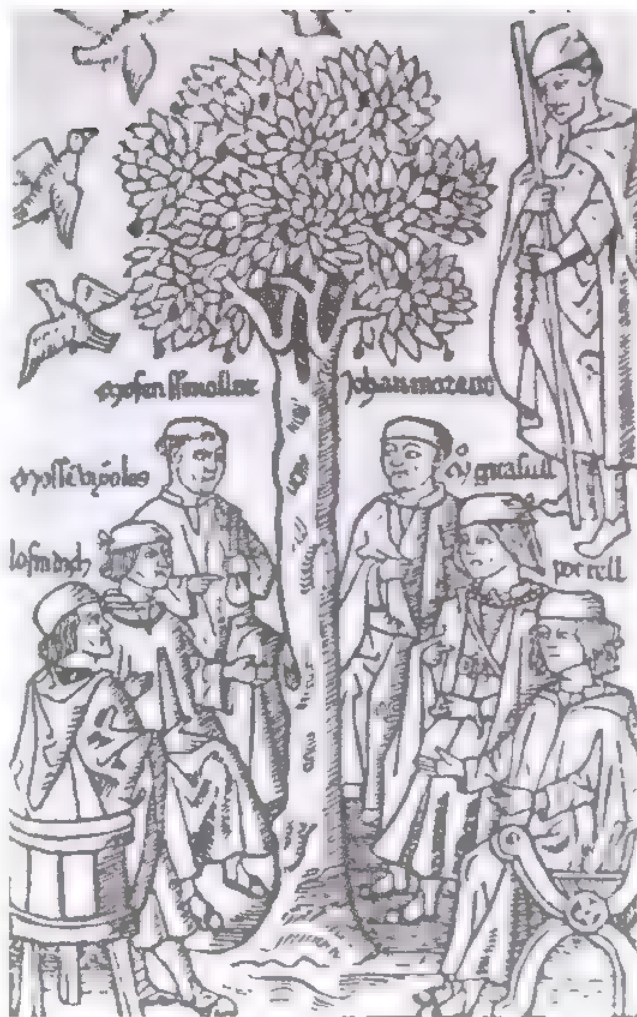 mosen ffenollar
Johan moreno
mossē viñoles
gaçull
lo sindich
portell